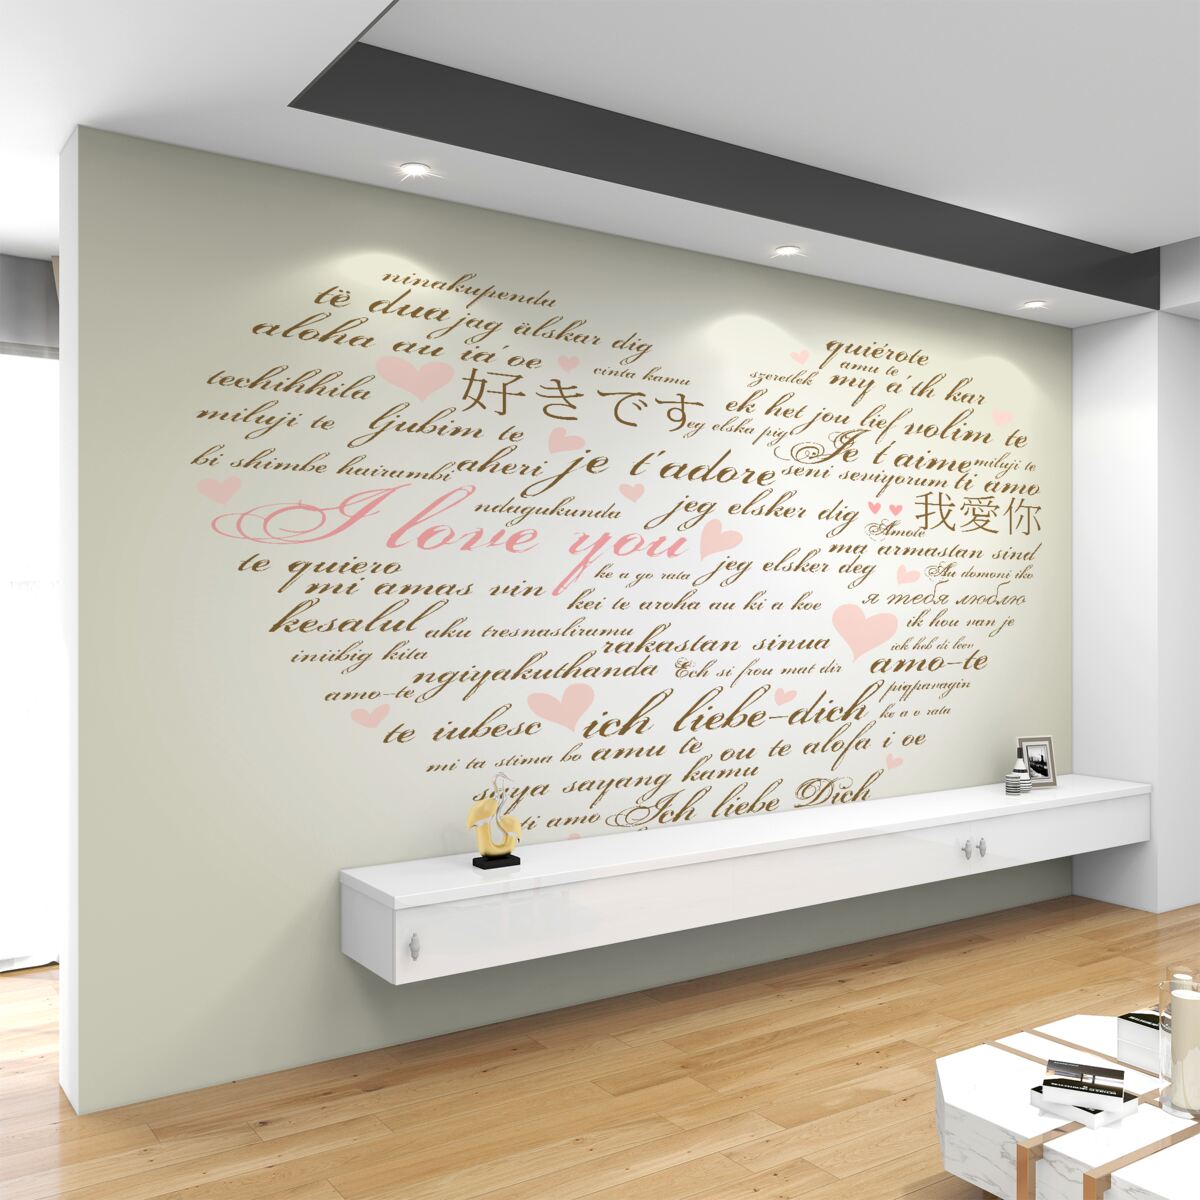 ninakupenda
të dua jag älskar dig
aloha au ia' oe
cinta kamu
techihhila
好きです
miluji te ljubim te
eg elska pig
bi shimbe hairambi
aheri je t'adore
ndagukunda
jeg elsker dig
I love you
te quiero
mi amas vin
ke a go rata
jeg elsker deg
kei te aroha au ki a koe
kesalul
aku tresnasliramu
rakastan sinua
iniibig kita
ngiyakuthanda
Ech si frou mat dir
amo-te
te iubesc
ich liebe-dich
mi ta stima bo
amu te
ou te alofa i oe
saya sayang kamu
ti amo
Ich liebe Dich
quiérote
amu te
szeretlek
my a'th kar
ek het jou lief
volim te
Je t'aime
miluji te
seni seviyorum
ti amo
我愛你
Amote
ma armastan sind
Au domoni iko
я тебя люблю
ik hou van je
ick heb di leev
amo-te
piqpavagin
ke a o rata